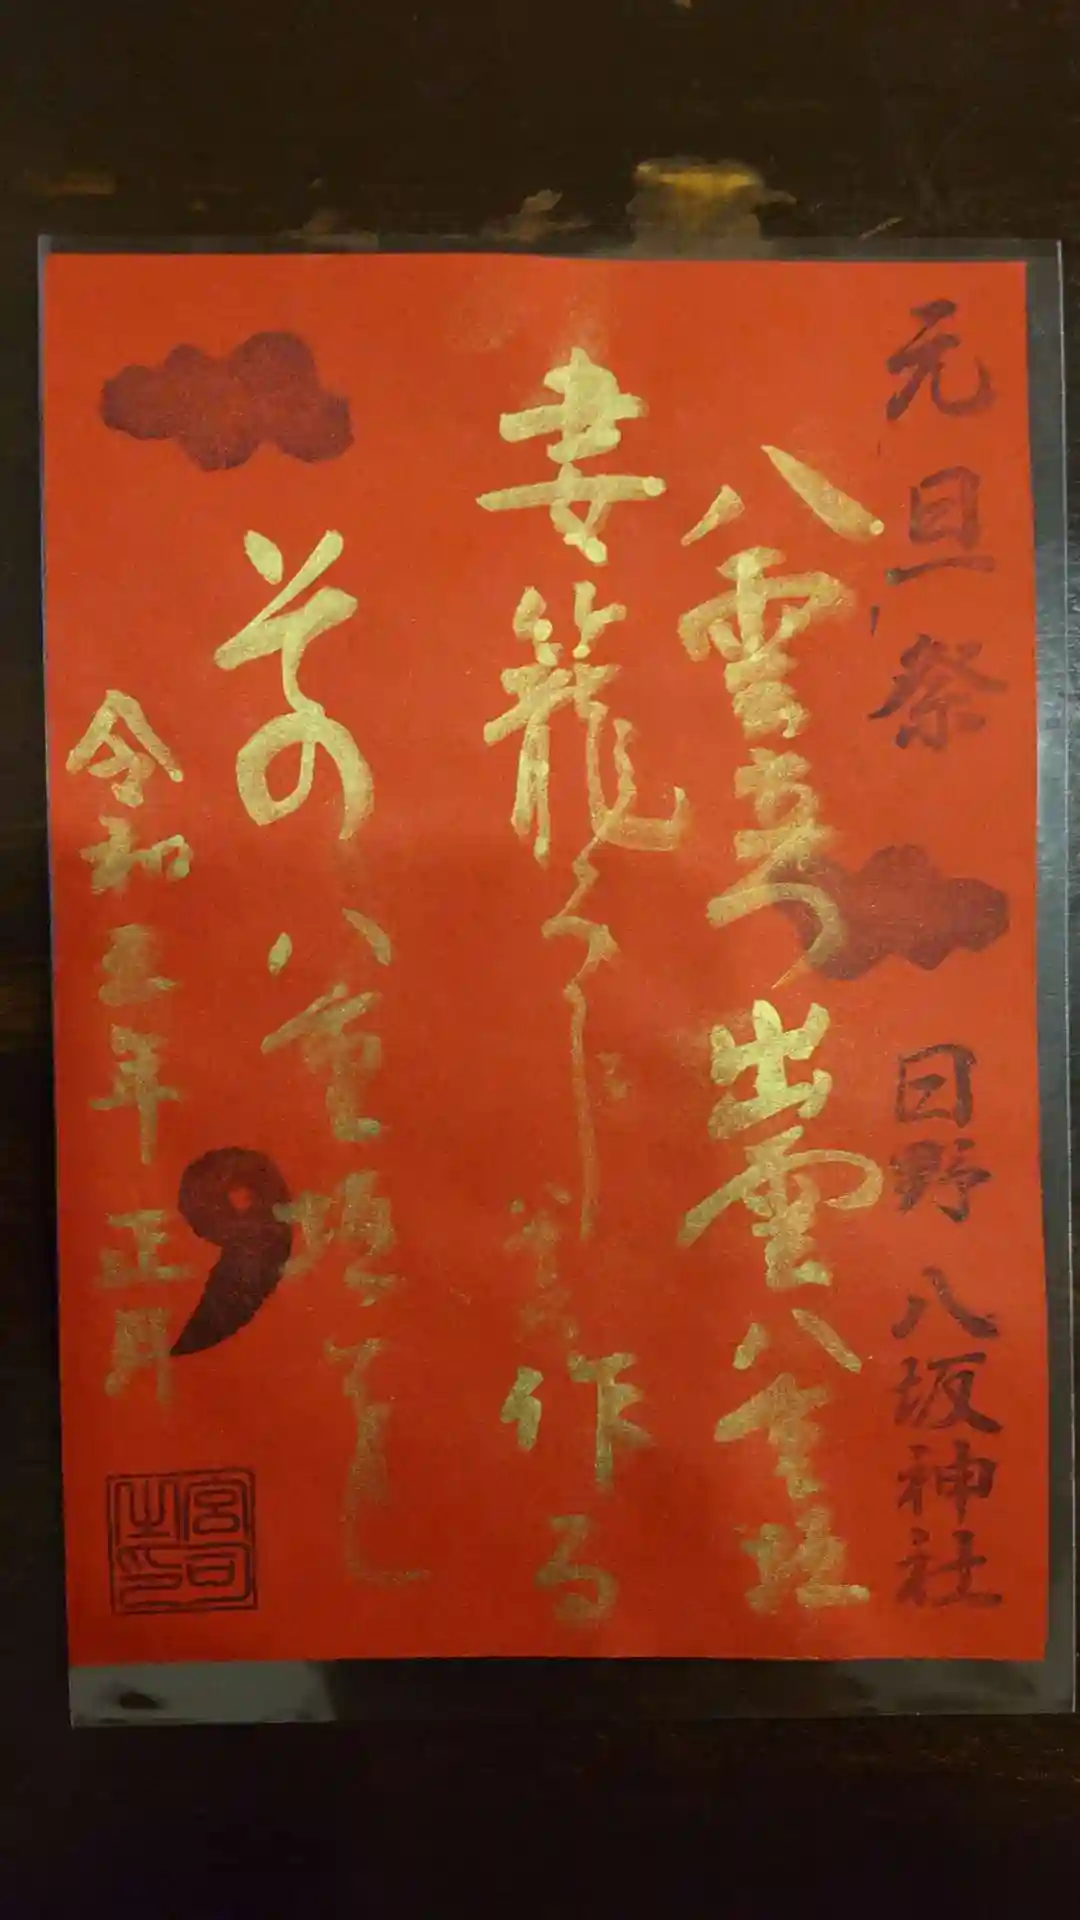 元旦祭 日野 八坂神社
八雲立つ出雲八重垣
妻籠みに八重垣作る
その八重垣を
令和五年 正月
宮司之印